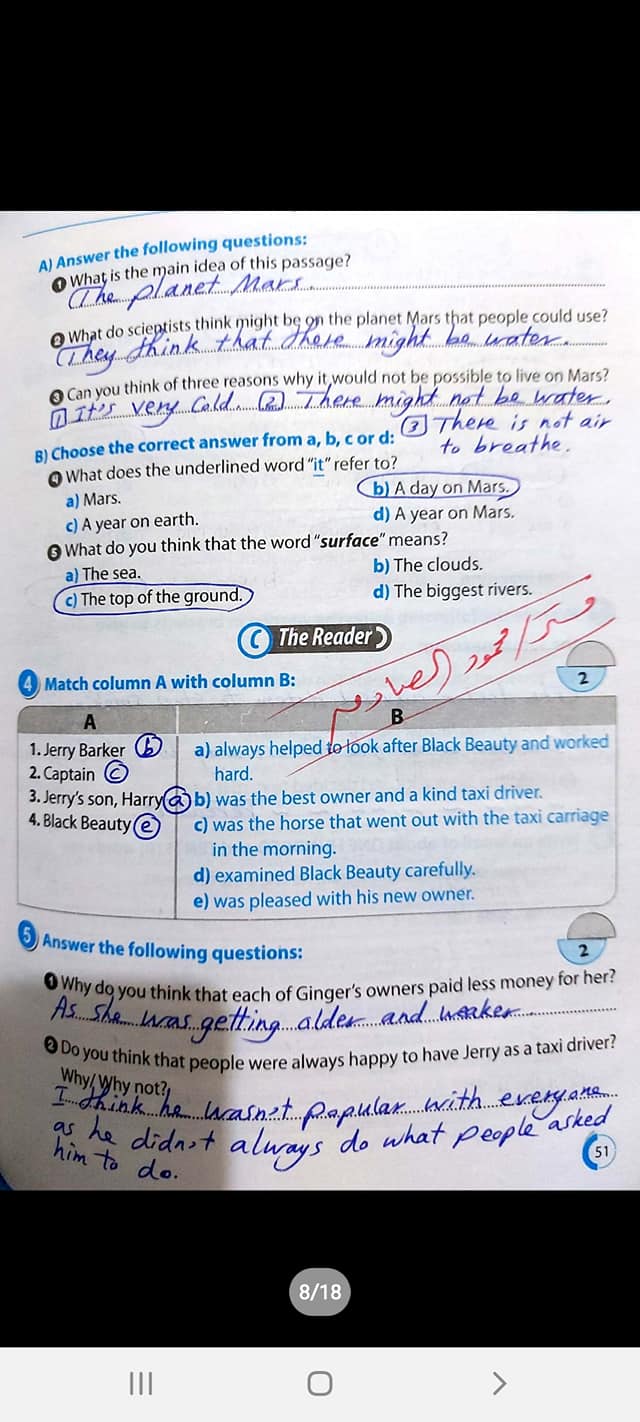 A) Answer the following questions:
❶ What is the main idea of this passage?
The planet Mars.
❷ What do scientists think might be on the planet Mars that people could use?
They think that there might be water.
❸ Can you think of three reasons why it would not be possible to live on Mars?
1 It's very Cold. 2 There might not be water.
3 There is not air
to breathe.
B) Choose the correct answer from a, b, c or d:
❹ What does the underlined word "it" refer to?
a) Mars. b) A day on Mars.
c) A year on earth. d) A year on Mars.
❺ What do you think that the word "surface" means?
a) The sea. b) The clouds.
c) The top of the ground. d) The biggest rivers.
C The Reader
4 Match column A with column B:
2
A B
1. Jerry Barker b a) always helped to look after Black Beauty and worked
2. Captain c hard.
3. Jerry's son, Harry a b) was the best owner and a kind taxi driver.
4. Black Beauty e c) was the horse that went out with the taxi carriage
in the morning.
d) examined Black Beauty carefully.
e) was pleased with his new owner.
5 Answer the following questions:
2
❶ Why do you think that each of Ginger's owners paid less money for her?
As she was getting older and weaker.
❷ Do you think that people were always happy to have Jerry as a taxi driver?
Why/ Why not?
I think he wasn't popular with everyone
as he didn't always do what people asked
him to do.
51
8/18